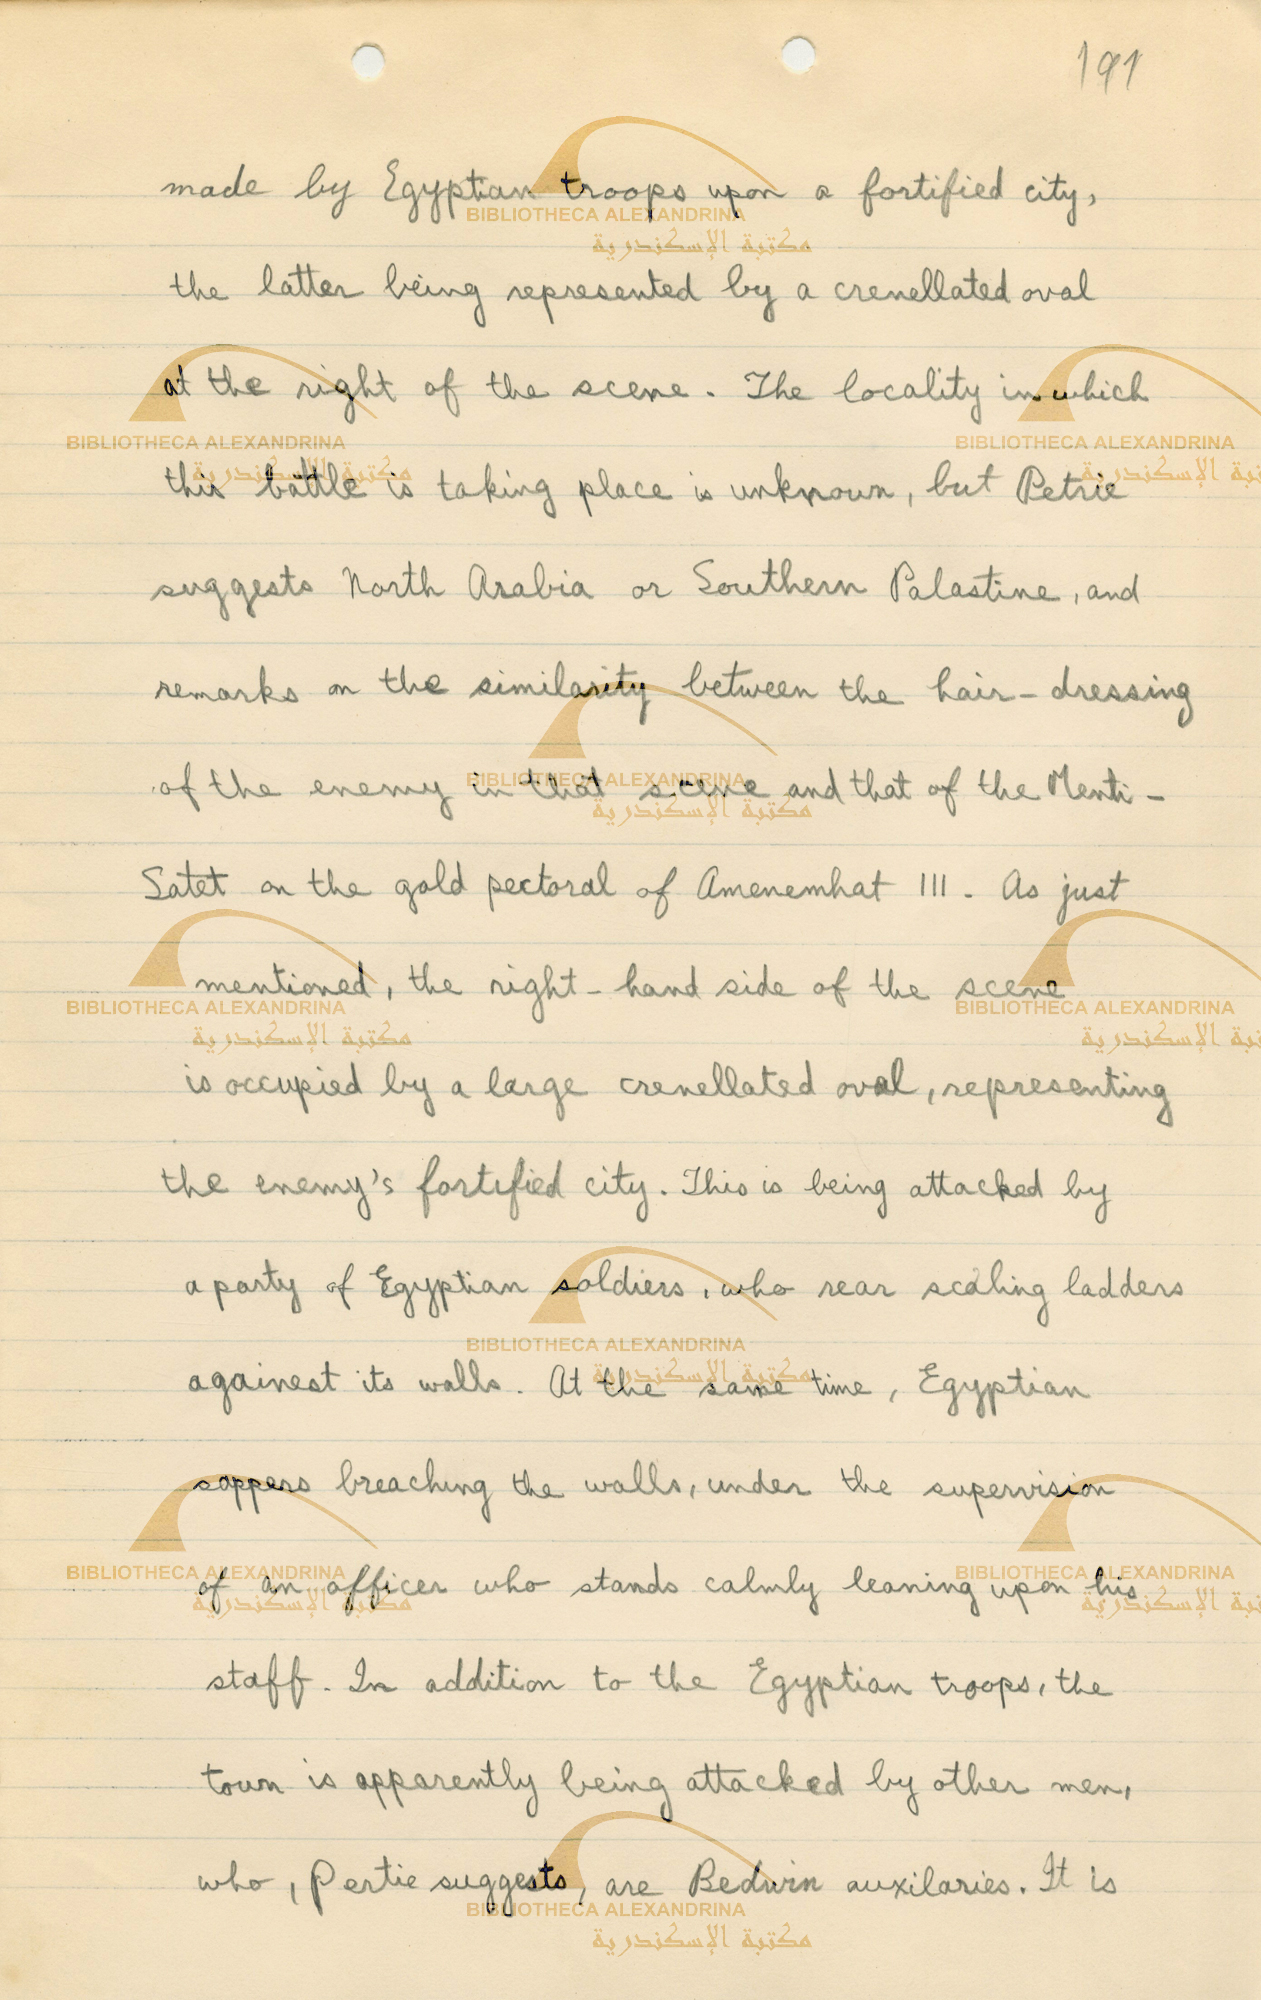 191
made by Egyptian troops upon a fortified city,
the latter being represented by a crenellated oval
at the right of the scene. The locality in which
this battle is taking place is unknown, but Petrie
suggests North Arabia or Southern Palastine, and
remarks on the similarity between the hair-dressing
of the enemy in that scene and that of the Menti-
Satet on the gold pectoral of Amenemhat III. As just
mentioned, the right-hand side of the scene
is occupied by a large crenellated oval, representing
the enemy's fortified city. This is being attacked by
a party of Egyptian soldiers, who rear scaling ladders
againest its walls. At the same time, Egyptian
sappers breaching the walls, under the supervision
of an officer who stands calmly leaning upon his
staff. In addition to the Egyptian troops, the
town is apparently being attacked by other men,
who, Pertie suggests, are Bedwin auxilaries. It is
BIBLIOTHECA ALEXANDRINA
مكتبة الإسكندرية